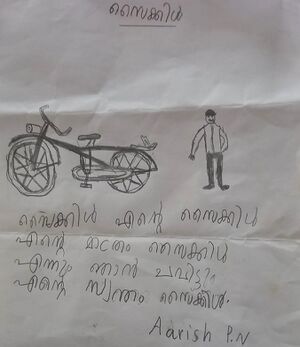 സൈക്കിൾ
സൈക്കിൾ എന്റെ സൈക്കിൾ
എന്റെ മാത്രം സൈക്കിൾ
എന്നും ഞാൻ ചവിട്ടും
എന്റെ സ്വന്തം സൈക്കിൾ.
Aarish P.N